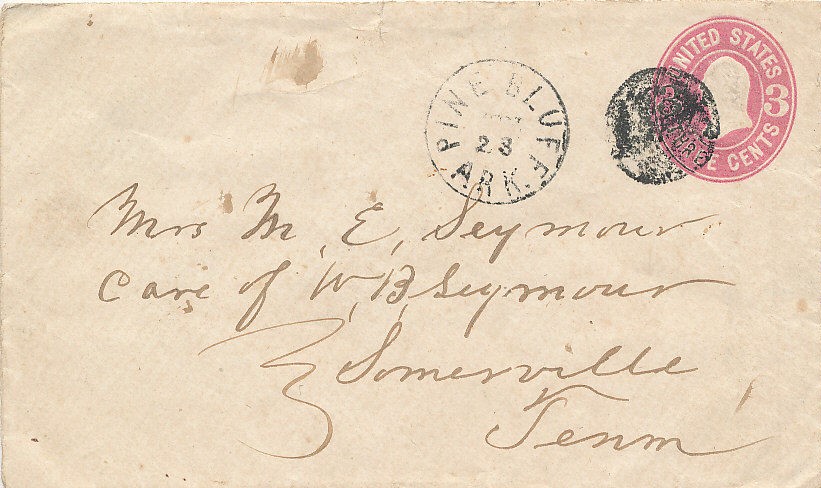 UNITED STATES
3
CENTS
PINE BLUFF
23
ARK.
Mrs M, E, Seymour
Care of W, B, Seymour
Somerville
Tenn